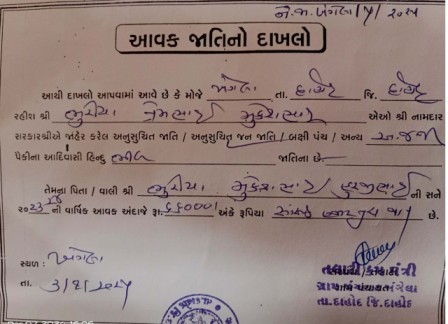 ને.જ.ખંગેલા/૫/ ૨૦૨૫
આવક જાતિનો દાખલો
આથી દાખલો આપવામાં આવે છે કે મોજે ખંગેલા તા. દાહોદ જિ. દાહોદ
રહીશ શ્રી ભુરીયા મુકેશભાઈ એઓ શ્રી નામદાર
સરકારશ્રીએ જાહેર કરેલ અનુસુચિત જાતિ / અનુસુચિત જન જાતિ / બક્ષી પંચ / અન્ય અ.જ.જા
પૈકીના આદિવાસી હિન્દુ ભીલ જાતિના છે.
તેમના પિતા / વાલી શ્રી ભુરીયા મુકેશભાઈ ની સને
૨૦૨૩/૨૪ ની વાર્ષિક આવક અંદાજે રૂા. ૬૬૦૦૦/ અંકે રૂપિયા છે.
સ્થળ : ખંગેલા
તા.
તલાટી કમ મંત્રી
ગ્રામ પંચાયત ખંગેલા
તા.દાહોદ જિ.દાહોદ